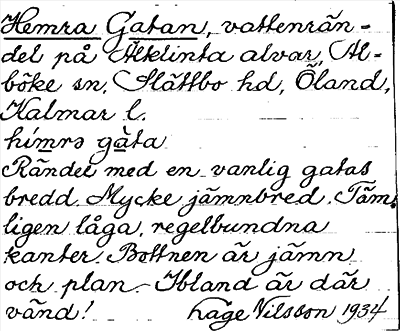 Hemra Gatan, vattenrän-
del på Alklinta alvar, Al-
böke sn, Slättbo hd, Öland,
Kalmar l.
hímrə gàta
Rändel med en vanlig gatas
bredd. Mycke jämnbred. Täm-
ligen låga, regelbundna
kanter. Bottnen är jämn
och plan. - Ibland är där
vänd! Lage Nilsson 1934